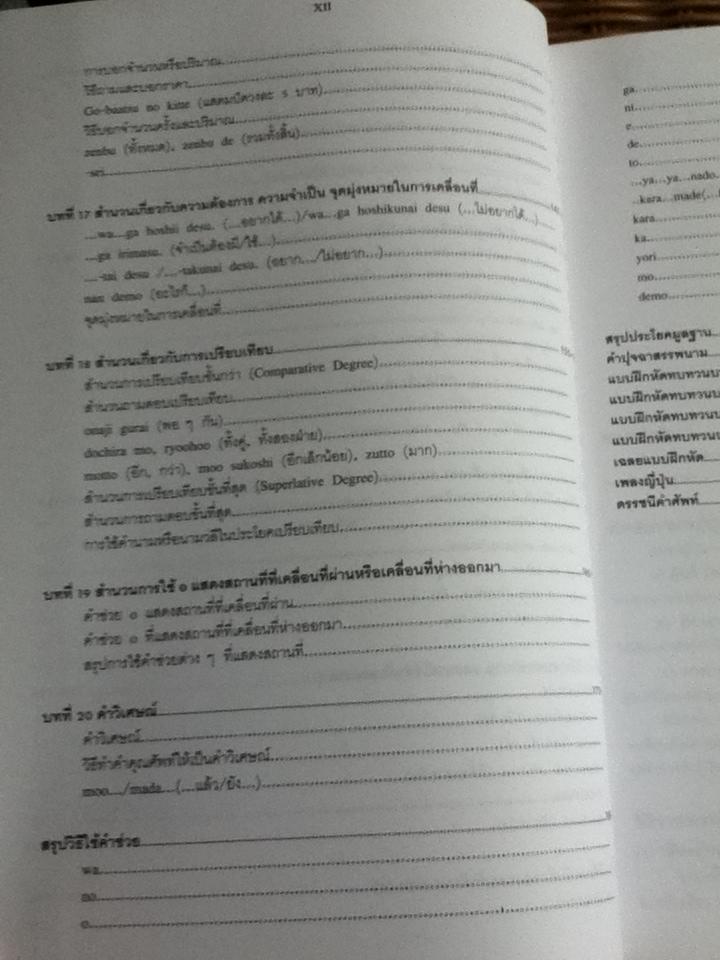 XII
การบอกจำนวนหรือปริมาณ
วิธีถามและบอกราคา
Go-baatsu no kitte (แสตมป์ดวงละ 5 บาท)
วิธีบอกจำนวนครั้งและปริมาณ
zenbu (ทั้งหมด), zenbu de (รวมทั้งสิ้น)
-sei
บทที่ 17 สำนวนเกี่ยวกับความต้องการ ความจำเป็น จุดมุ่งหมายในการเคลื่อนที่
...wa...ga hoshii desu. (...อยากได้...)/wa...ga hoshikunai desu (...ไม่อยากได้...)
...ga irimasu. (จำเป็นต้องมี/ใช้...)
...-tai desu /...-takunai desu. (อยาก.../ไม่อยาก...)
nan demo (อะไรก็...)
จุดมุ่งหมายในการเคลื่อนที่
บทที่ 18 สำนวนเกี่ยวกับการเปรียบเทียบ
สำนวนการเปรียบเทียบขั้นกว่า (Comparative Degree)
สำนวนถามตอบเปรียบเทียบ
onaji gurai (พอ ๆ กัน)
dochira mo, ryoohoo (ทั้งคู่, ทั้งสองฝ่าย)
motto (อีก, กว่า), moo sukoshi (อีกเล็กน้อย), zutto (มาก)
สำนวนการเปรียบเทียบขั้นที่สุด (Superlative Degree)
สำนวนการถามตอบขั้นที่สุด
การใช้คำนามหรือนามวลีในประโยคเปรียบเทียบ
บทที่ 19 สำนวนการใช้ o แสดงสถานที่ที่เคลื่อนที่ผ่านหรือเคลื่อนที่ห่างออกมา
คำช่วย o แสดงสถานที่ที่เคลื่อนที่ผ่าน
คำช่วย o ที่แสดงสถานที่ที่เคลื่อนที่ห่างออกมา
สรุปการใช้คำช่วยต่าง ๆ ที่แสดงสถานที่
บทที่ 20 คำวิเศษณ์
คำวิเศษณ์
วิธีทำคำคุณศัพท์ให้เป็นคำวิเศษณ์
moo.../mada...(...แล้ว/ยัง...)
สรุปวิธีใช้คำช่วย
wa
no
o
ga
ni
e
de
to
...ya...ya...nado
...kara...made(...
kara
ka
yori
mo
demo
สรุปประโยคมูลฐาน
คำปุจฉาสรรพนาม
แบบฝึกหัดทบทวนบ
แบบฝึกหัดทบทวนบ
แบบฝึกหัดทบทวนบ
แบบฝึกหัดทบทวนบ
เฉลยแบบฝึกหัด
เพลงญี่ปุ่น
ดรรชนีคำศัพท์